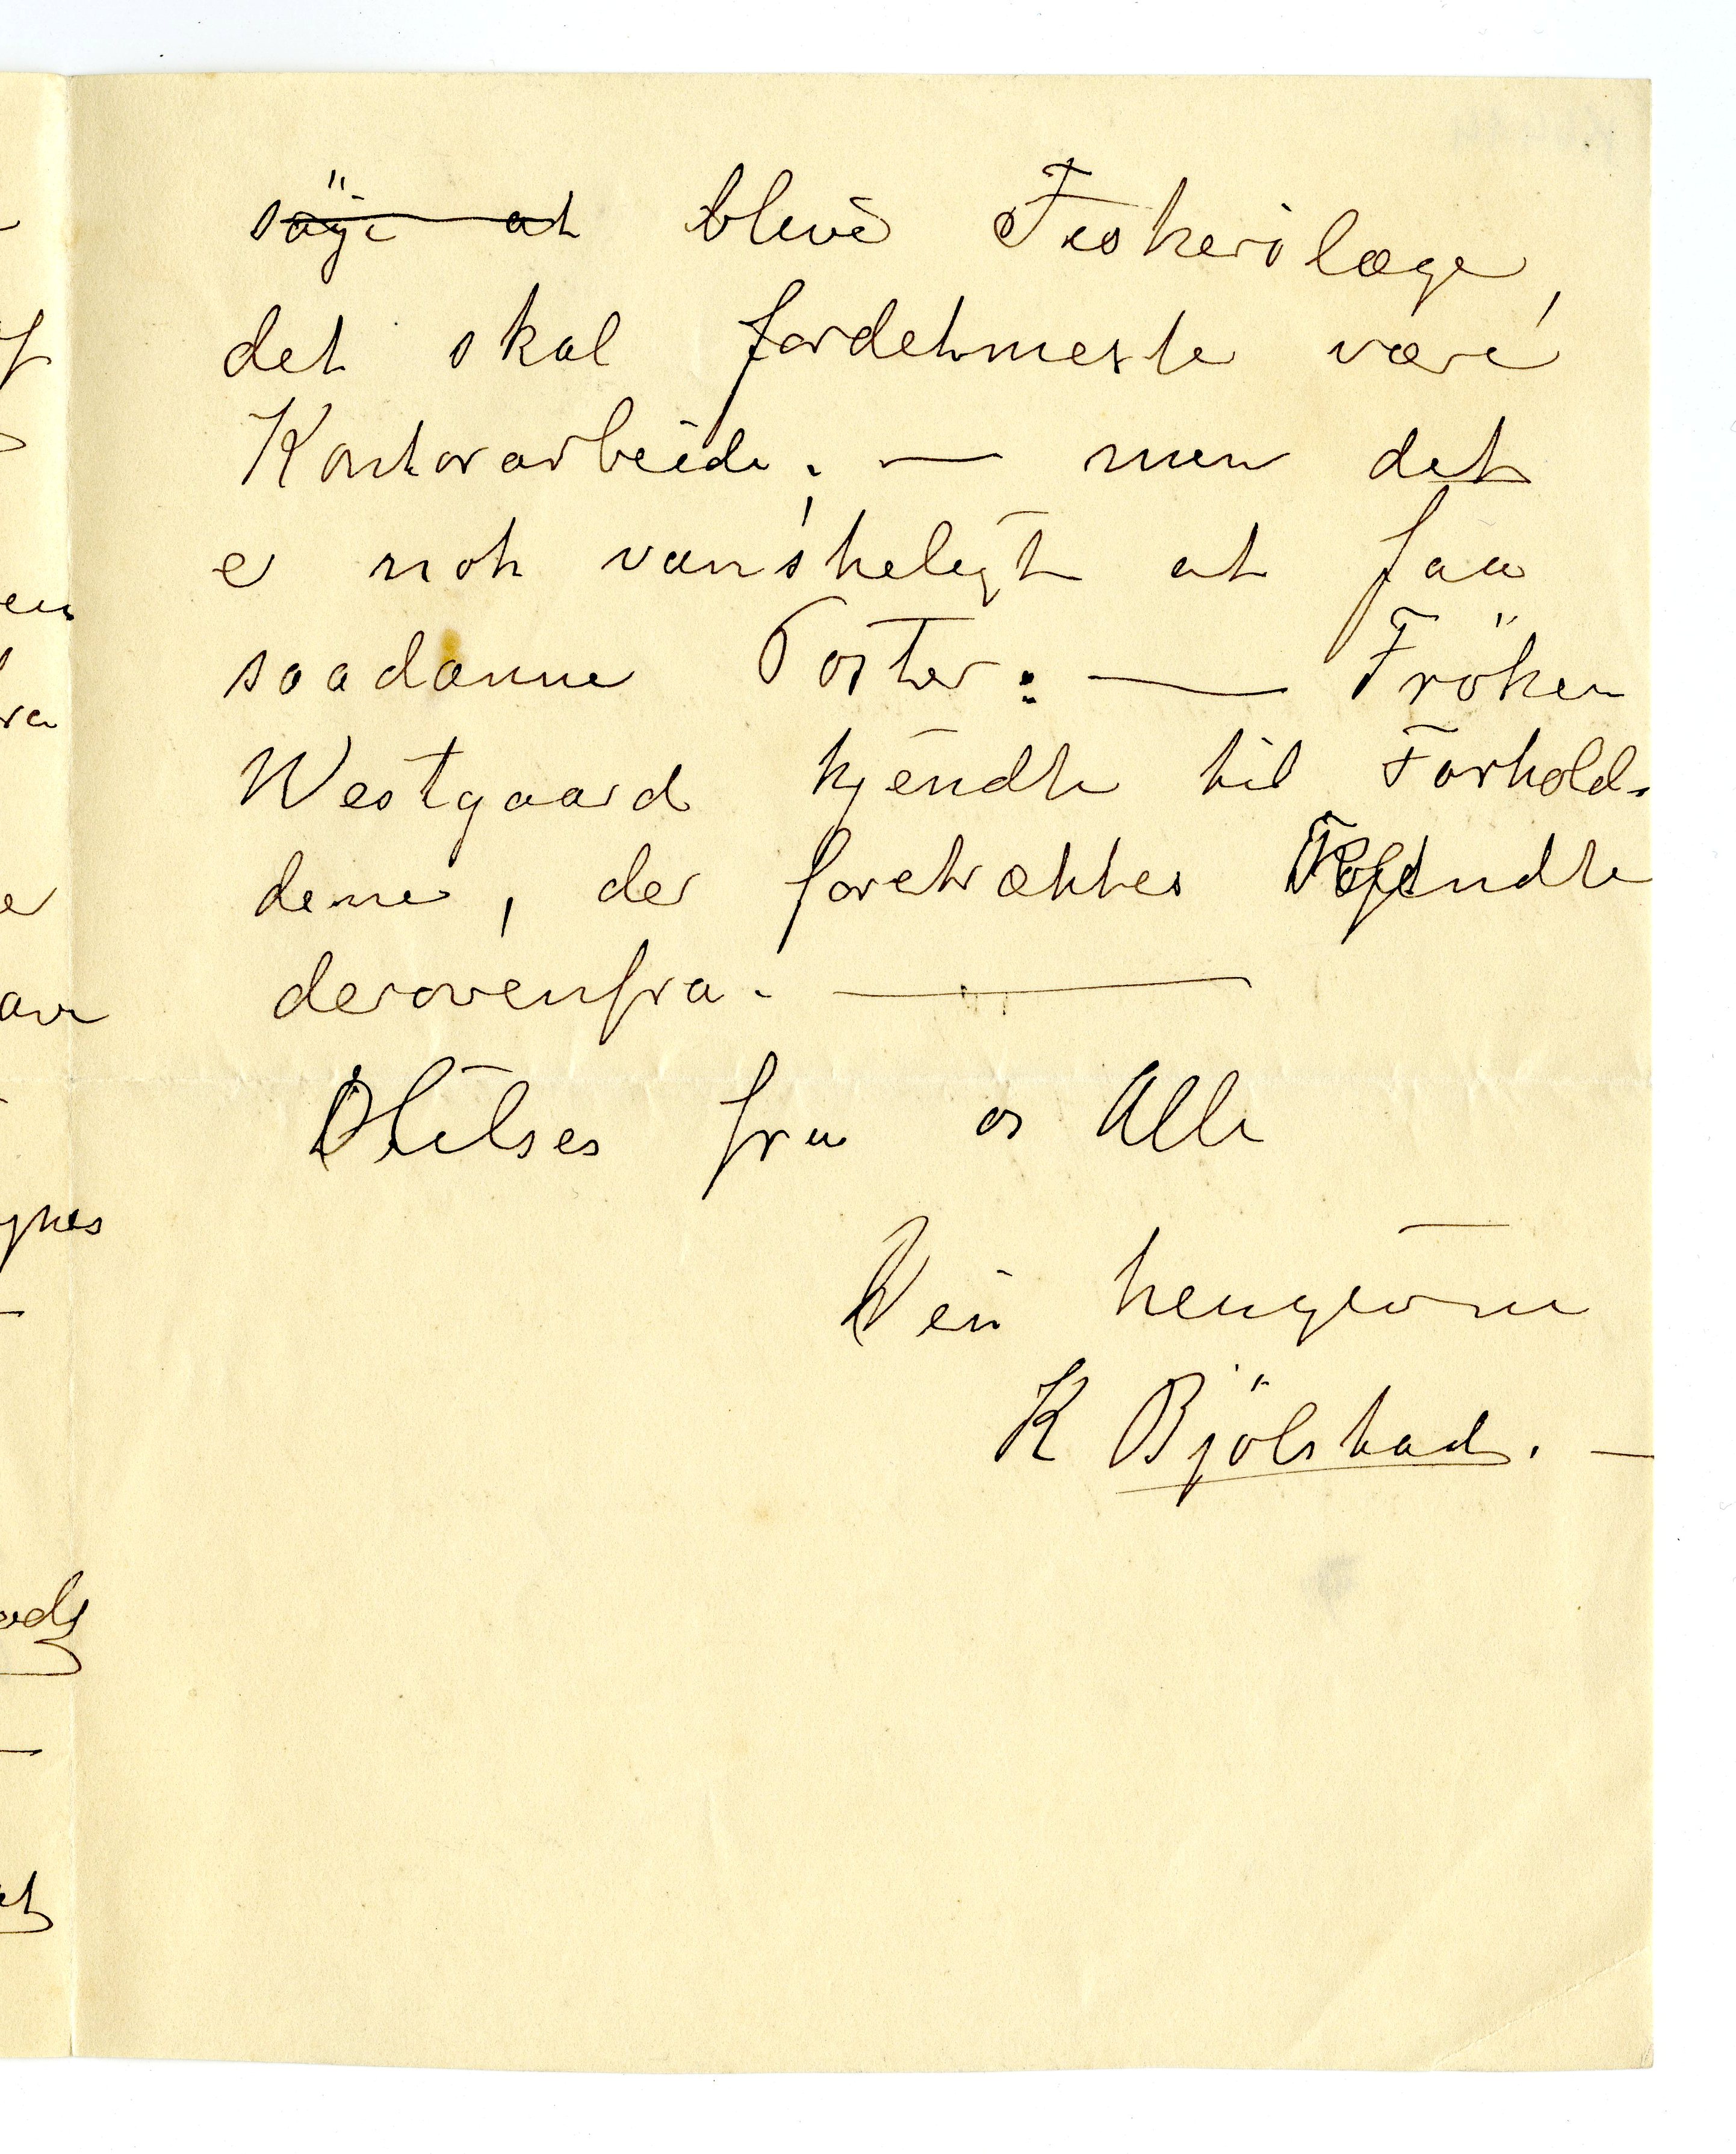 söge at blive Fiskerilæge,
det skal fordetmeste være
Kontorarbeide; — men det
er nok vanskeligt at faa
saadanne Poster: — Fröken
Westgaard kjendte til Forhold-
dene, der foretrækkes
derovenfra. —
Hilses fra os Alle
Din hengivne
K Bjölstad. —